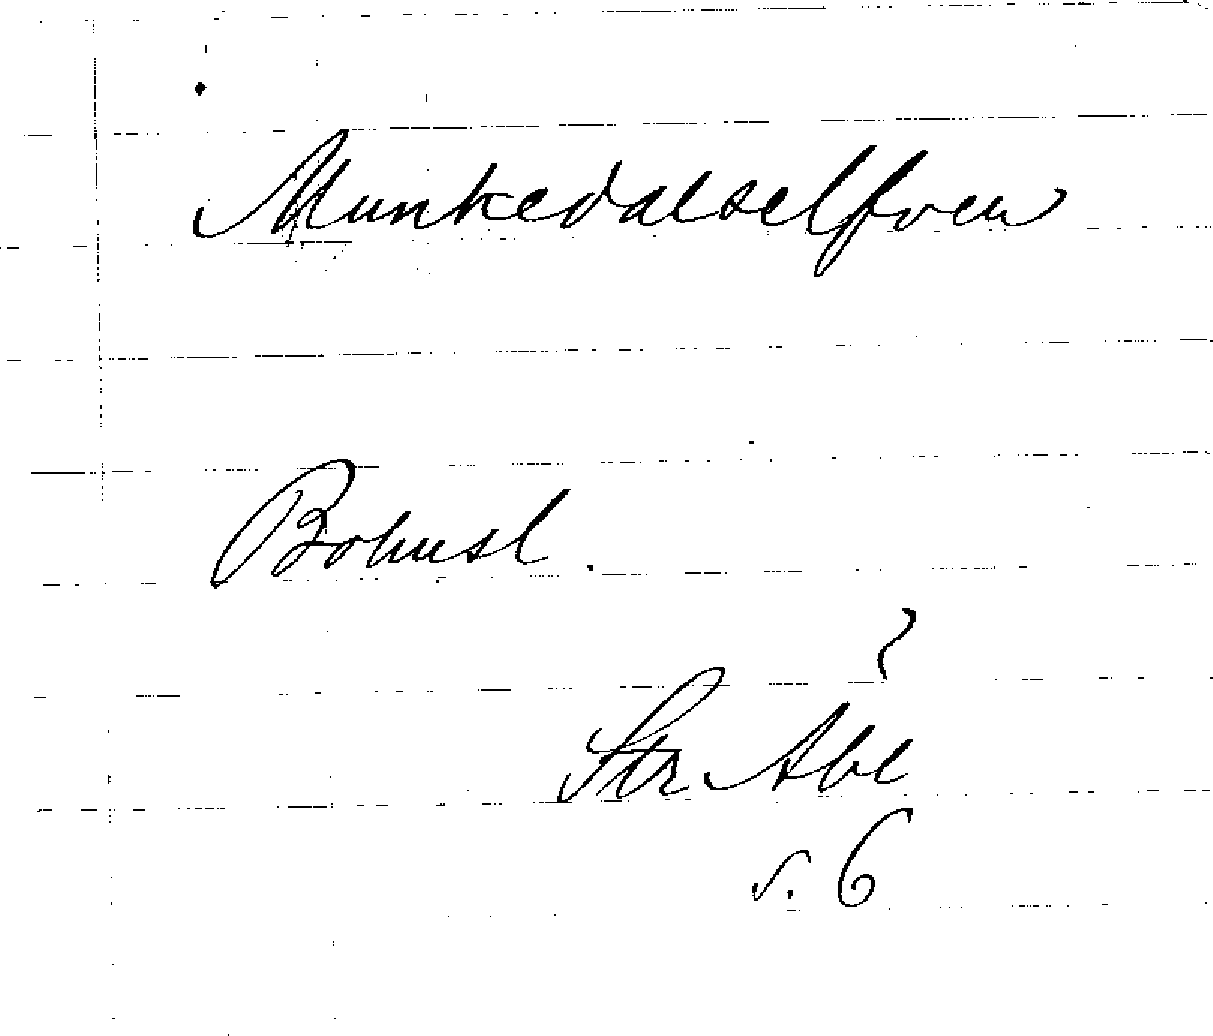 Munkedalselfven
Bohusl.
Str. Abl
s. 6